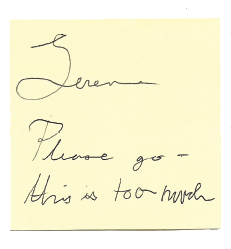 Jerem
Please go -
this is too much